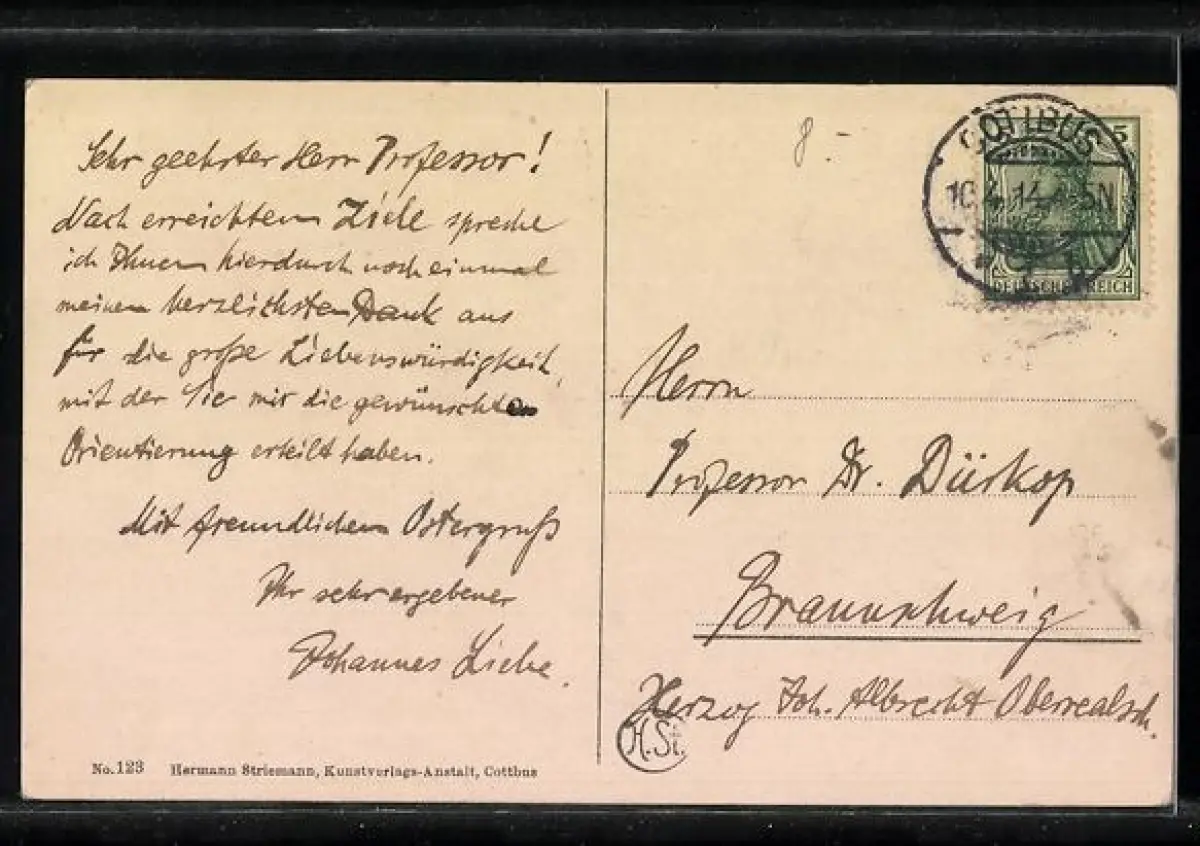 Sehr geehrter Herr Professor!
Nach erreichtem Ziele spreche
ich Ihnen hierdurch noch einmal
meinen herzlichsten Dank aus
für die große Liebenswürdigkeit,
mit der Sie mir die gewünschten
Orientierung erteilt haben.
Mit freundlichem Ostergruß
Ihr sehr ergebener
Johannes Liebe.
No. 123 Hermann Striemann, Kunstverlags-Anstalt, Cottbus
8.-
COTTBUS
10.4.14. 4-5N
5
DEUTSCHES REICH
Herrn
Professor Dr. Dürkop
Braunschweig
Herzog Joh. Albrecht Oberrealsch.
H. St.